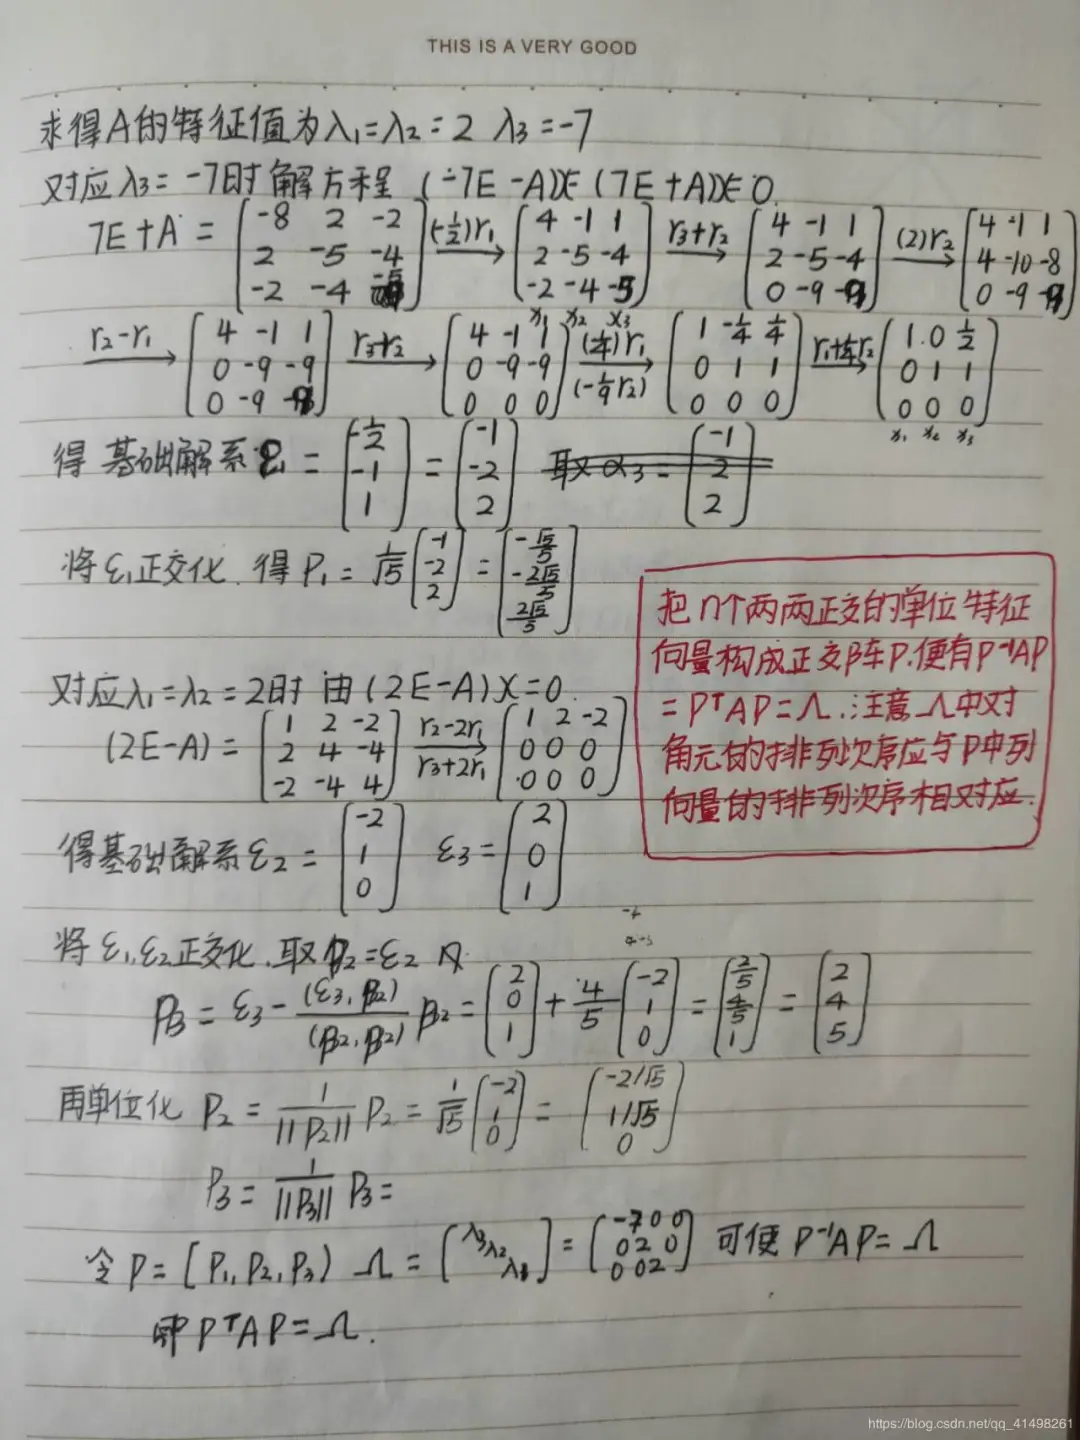 THIS IS A VERY GOOD
求得A的特征值为λ₁=λ₂=2 λ₃=-7
对应λ₃=-7时解方程 (-7E-A)X=(7E+A)X=0.
7E+A = [-8 2 -2; 2 -5 -4; -2 -4 -5] →(-1/2)r₁ [4 -1 1; 2 -5 -4; -2 -4 -5] →r₃+r₂ [4 -1 1; 2 -5 -4; 0 -9 -9] →(2)r₂ [4 -1 1; 4 -10 -8; 0 -9 -9]
→r₂-r₁ [4 -1 1; 0 -9 -9; 0 -9 -9] →r₃+r₂ x₁ x₂ x₃ [4 -1 1; 0 -9 -9; 0 0 0] →(1/4)r₁ (-1/9 r₂) [1 -1/4 1/4; 0 1 1; 0 0 0] →r₁+1/4r₂ [1 0 1/2; 0 1 1; 0 0 0]
x₁ x₂ x₃
得基础解系 ε₁ = [-1/2; -1; 1] = [-1; -2; 2] 取α₃ = [-1; 2; 2]
将ε₁正交化.得P₁ = 1/√5 [-1; -2; 2] = [-√5/5; -2√5/5; 2√5/5]
把n个两两正交的单位特征
向量构成正交阵P.便有P⁻¹AP
=PᵀAP=Λ.注意Λ中对
角元的排列次序应与P中列
向量的排列次序相对应.
对应λ₁=λ₂=2时 由(2E-A)X=0.
(2E-A) = [1 2 -2; 2 4 -4; -2 -4 4] →r₂-2r₁ r₃+2r₁ [1 2 -2; 0 0 0; 0 0 0]
得基础解系ε₂ = [-2; 1; 0] ε₃ = [2; 0; 1]
将ε₁,ε₂正交化.取β₂=ε₂
β₃ = ε₃ - (ε₃,β₂)/(β₂,β₂) β₂ = [2; 0; 1] + 4/5 [-2; 1; 0] = [2/5; 4/5; 1] = [2; 4; 5]
再单位化 P₂ = 1/||P₂|| P₂ = 1/√5 [-2; 1; 0] = [-2/√5; 1/√5; 0]
P₃ = 1/||P₃|| P₃ =
令P=[P₁,P₂,P₃) Λ = [λ₃ λ₂ λ₁] = [-7 0 0; 0 2 0; 0 0 2] 可使P⁻¹AP=Λ
即PᵀAP=Λ.
https://blog.csdn.net/qq_41498261